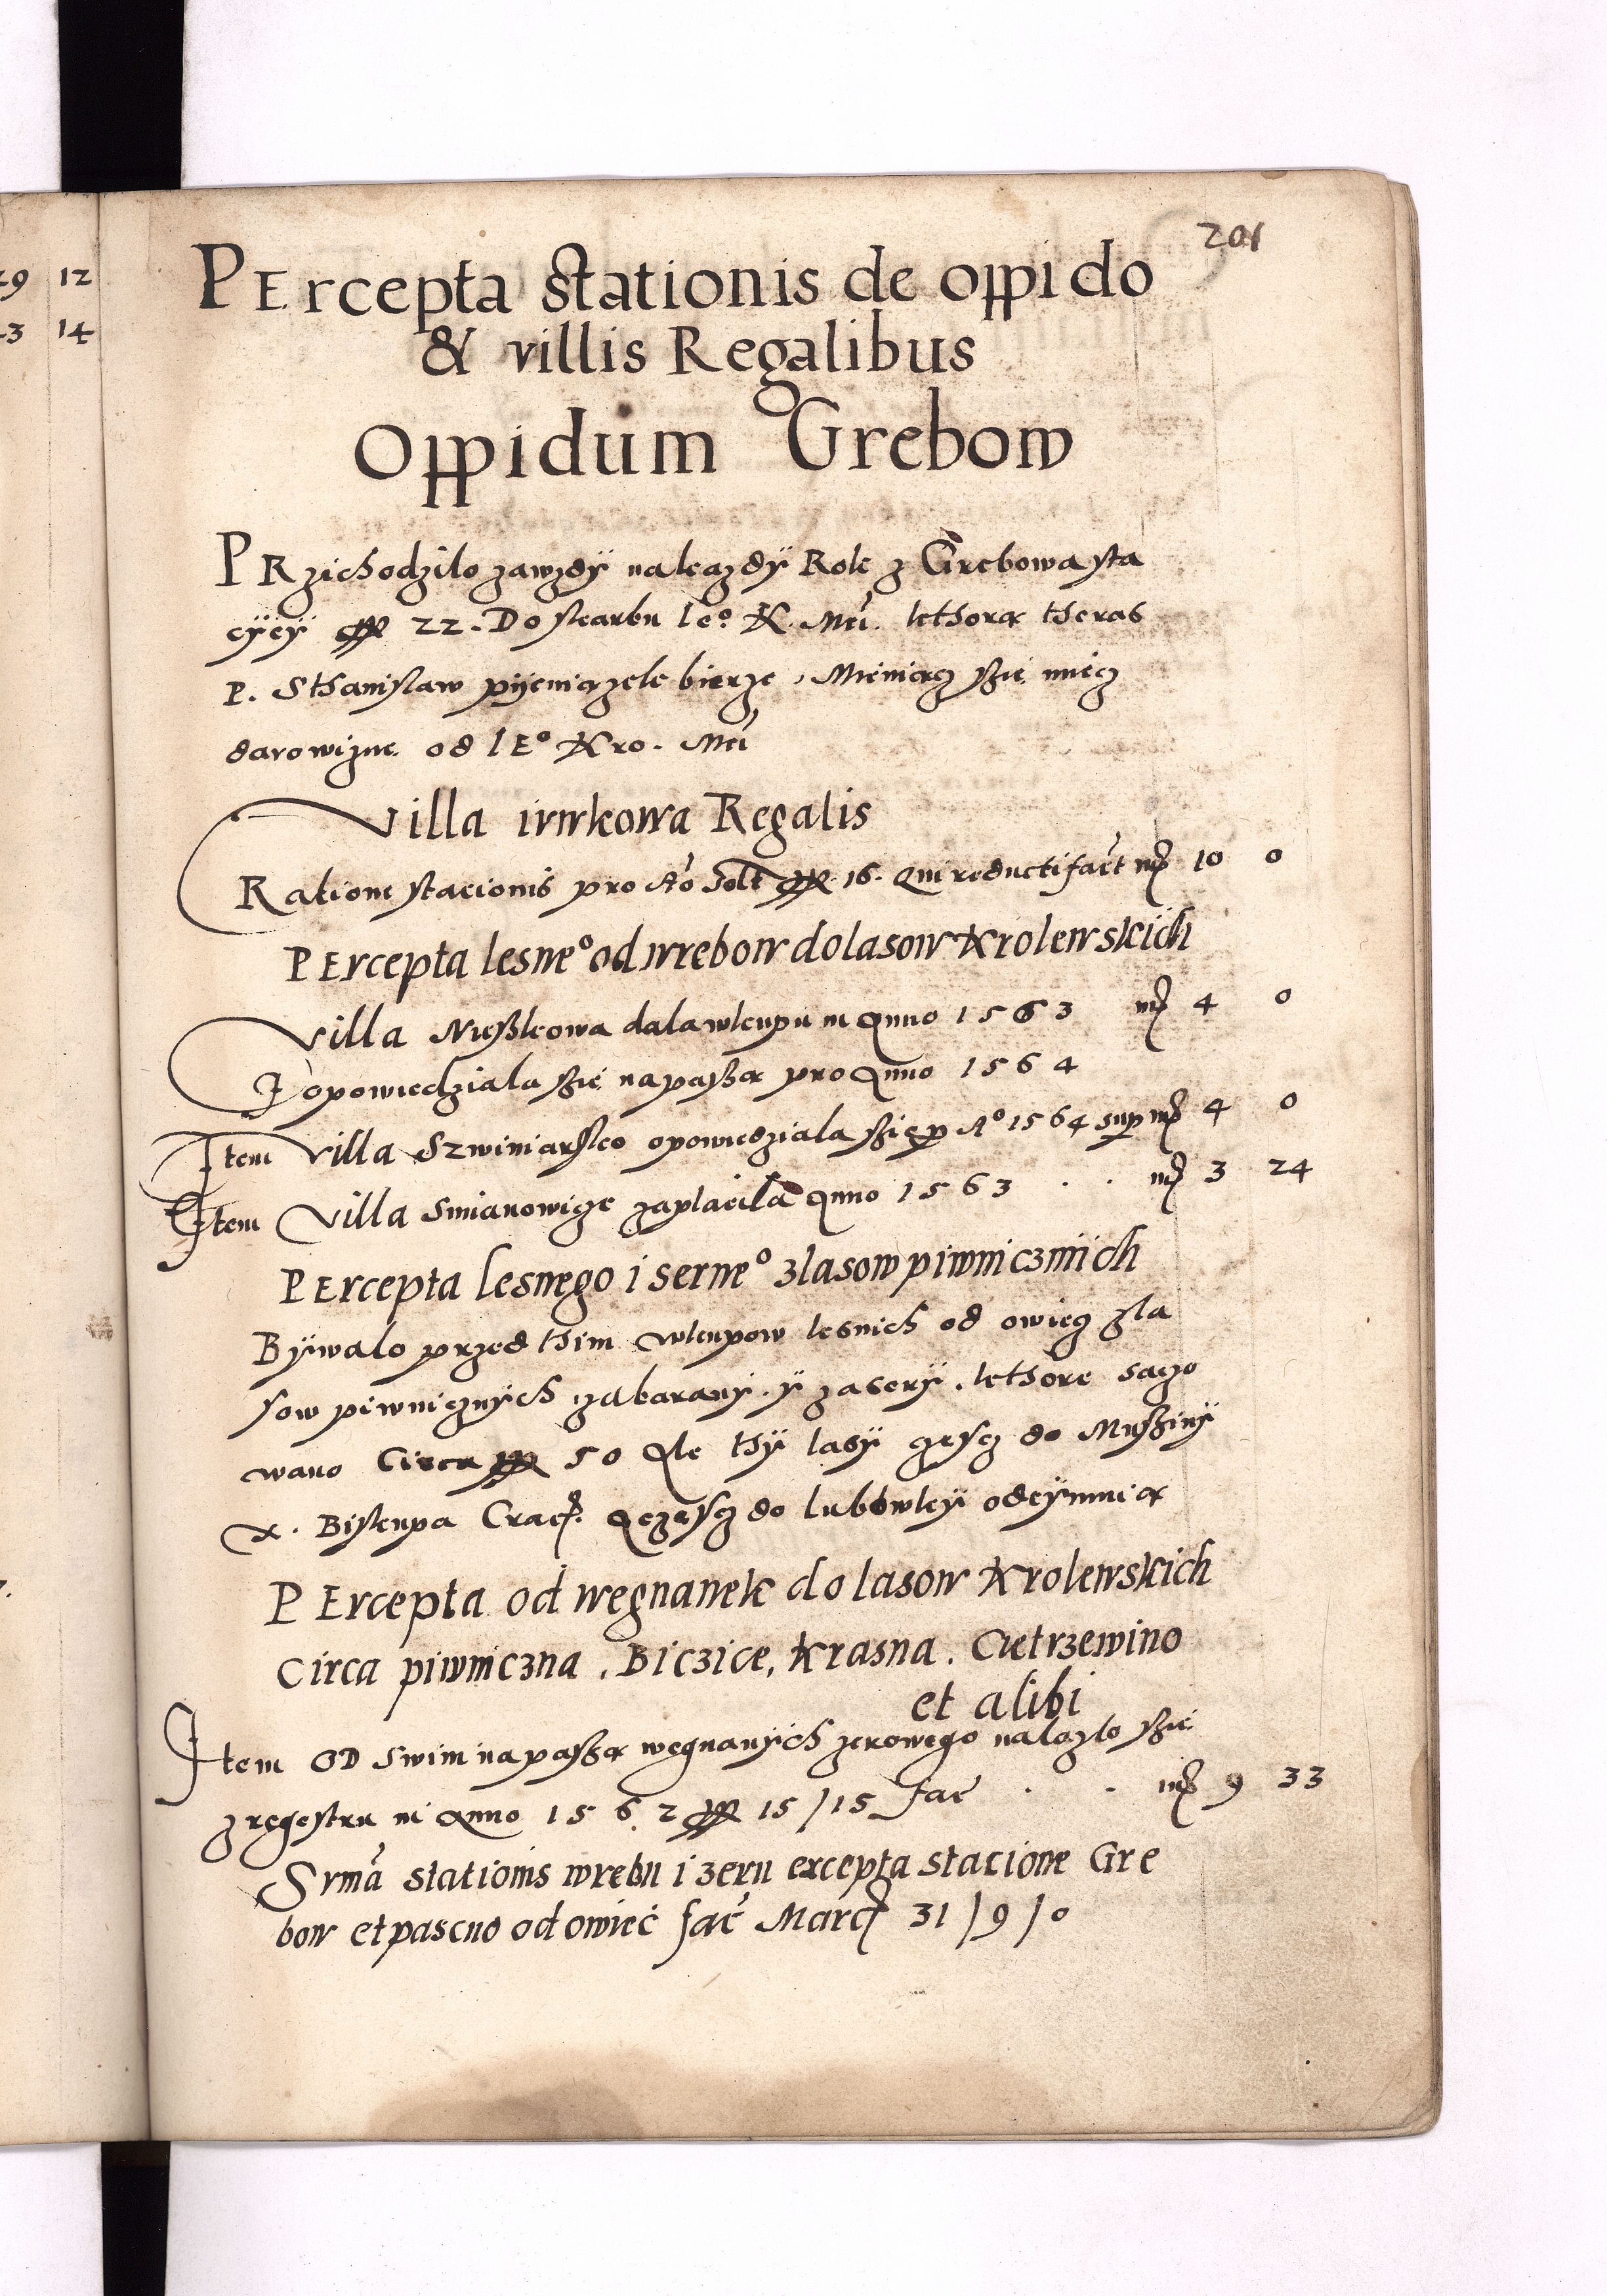 201
29 12
43 14
PErcepta stationis de oppido
& villis Regalibus
Oppidum Grebow
PRzichodzilo zawzdÿ na kazdÿ Rok z Grebowa sta
cÿeÿ 22. Do skarbu Ie° K. Mci. kthora theras
P. Sthanislaw pijeniązek bierze, Mieniącz szię miecz
darowizne od IE° Kro. Mci
Villa irwkowa Regalis
Ratione stacionis pro A°  16. Qui reducti facit mr 10 0
PErcepta lesne° od wrebow do lasow Krolewskich
Villa Nieszkowa dala wkupu in Anno 1563 mr 4 0
J opowiedziala szie na pasza pro Anno 1564
Item Villa Szwiniarsko opowiedziala szie p A° 1564 sup mr 4 0
Item Villa Smianowicze zaplacila Anno 1563 . . mr 3 24
PErcepta lesnego i serne° z lasow piwnicznich
Bÿwalo przed thim wkupow lesnich od owiecz z la
sow piwnicznych za baranÿ. ÿ za serÿ. kthore sączo
wano Circa 50 Ale thÿ lasÿ część do Muszinÿ
X. Biskupa Crac. A część do lubowleÿ odeÿmuia
PErcepta od wegnanek do lasow Krolewskich
Circa piwniczna, Biczice, Krasna, Cietrzewino
et alibi
Item OD swini na pasza wegnanÿch zerowego nalozlo szie
z regestru in Anno 1562 15/15 fac . . mr 9 33
Suma stationis wrebu i zeru excepta stacione Gre
bow et pascno od owiec fac Marc 31/9/0